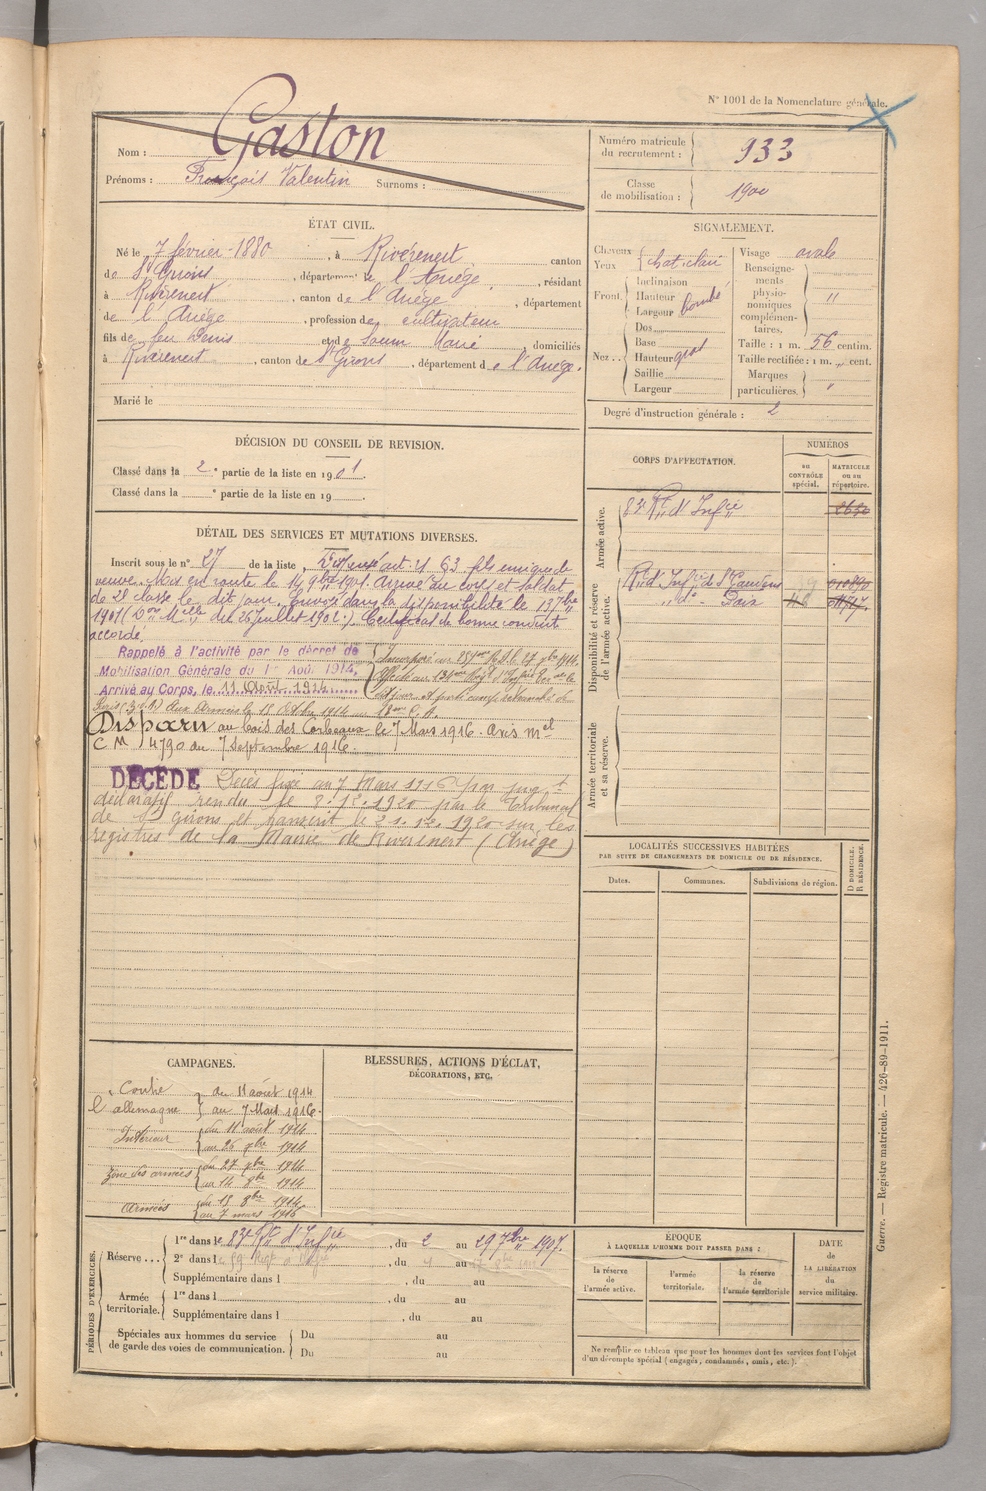 N° 1001 de la Nomenclature générale.
Nom : Gaston
Prénoms : François Valentin Surnoms :
Numéro matricule du recrutement : 933
Classe de mobilisation : 1900
ÉTAT CIVIL.
Né le 7 février 1880, à Rivèrenert, canton
de St Girons, département de l'Ariège, résidant
à Rivèrenert, canton de l'Ariège, département
de l'Ariège, profession de cultivateur
fils de feu Denis et de Soum Marie, domiciliés
à Rivèrenert, canton de St Girons, département de l'Ariège.
Marié le
SIGNALEMENT.
Cheveux
Yeux
chat. clair
Front.
Inclinaison
Hauteur
Largeur
bombé
Nez ..
Dos
Base
Hauteur gros
Saillie
Largeur
Visage ovale
Renseignements physionomiques complémentaires. "
Taille : 1 m. 56 centim.
Taille rectifiée : 1 m. " cent.
Marques particulières. "
Degré d'instruction générale : 2
DÉCISION DU CONSEIL DE REVISION.
Classé dans la 2e partie de la liste en 1901.
Classé dans la e partie de la liste en 19
CORPS D'AFFECTATION.
NUMÉROS
au CONTRÔLE spécial.
MATRICULE ou au répertoire.
Armée active.
83e Rgt d'Infie
Disponibilité et réserve de l'armée active.
Rt d'Infie de St Gaudens
" d° Foix
Armée territoriale et sa réserve.
DÉTAIL DES SERVICES ET MUTATIONS DIVERSES.
Inscrit sous le n° 27 de la liste, Dispensé art. 21 fils unique de
veuve. Mis en route le 14 9bre 1901. Arrivé au corps et soldat
de 2e classe le dit jour. Envoyé dans la disponibilité le
Certificat de bonne conduite
accordé.
Rappelé à l'activité par le décret de
Mobilisation Générale du 1er Août 1914.
Arrivé au Corps, le 11 Août 1914
aux Armées le 15 Octobre 1914
Disparu au bois des Corbeaux le 7 Mars 1916. Avis mel
C M 4790 du 7 Septembre 1916.
DÉCÉDÉ Décès fixé au 7 Mars 1916 par jugt
déclaratif rendu le 8. 1920 par le Tribunal
de St Girons et transcrit le 21. 1920 sur les
registres de la Mairie de Rivèrenert (Ariège)
LOCALITÉS SUCCESSIVES HABITÉES
PAR SUITE DE CHANGEMENTS DE DOMICILE OU DE RÉSIDENCE.
Dates.
Communes.
Subdivisions de région.
D DOMICILE.
R RÉSIDENCE.
CAMPAGNES.
Contre l'allemagne du 11 août 1914
au 7 Mars 1916.
Intérieur du 11 août 1914
au 26 7bre 1914
Zone des armées du 27 7bre 1914
au 14 8bre 1914
Armées du 15 8bre 1914
au 7 mars 1916
BLESSURES, ACTIONS D'ÉCLAT,
DÉCORATIONS, ETC.
PÉRIODES D'EXERCICES.
Réserve ...
1re dans le 83e Rgt d'Infie, du 2 au 29 7bre 1907.
2e dans le 59 Regt d'Infie, du au
Supplémentaire dans l , du au
Armée territoriale.
1re dans l , du au
Supplémentaire dans l , du au
Spéciales aux hommes du service de garde des voies de communication.
Du au
Du au
ÉPOQUE
À LAQUELLE L'HOMME DOIT PASSER DANS :
la réserve de l'armée active.
l'armée territoriale.
la réserve de l'armée territoriale
DATE
DE LA LIBÉRATION
du service militaire.
Ne remplir ce tableau que pour les hommes dont les services font l'objet
d'un décompte spécial (engagés, condamnés, omis, etc.).
Guerre. — Registre matricule. — 420-89-1911.